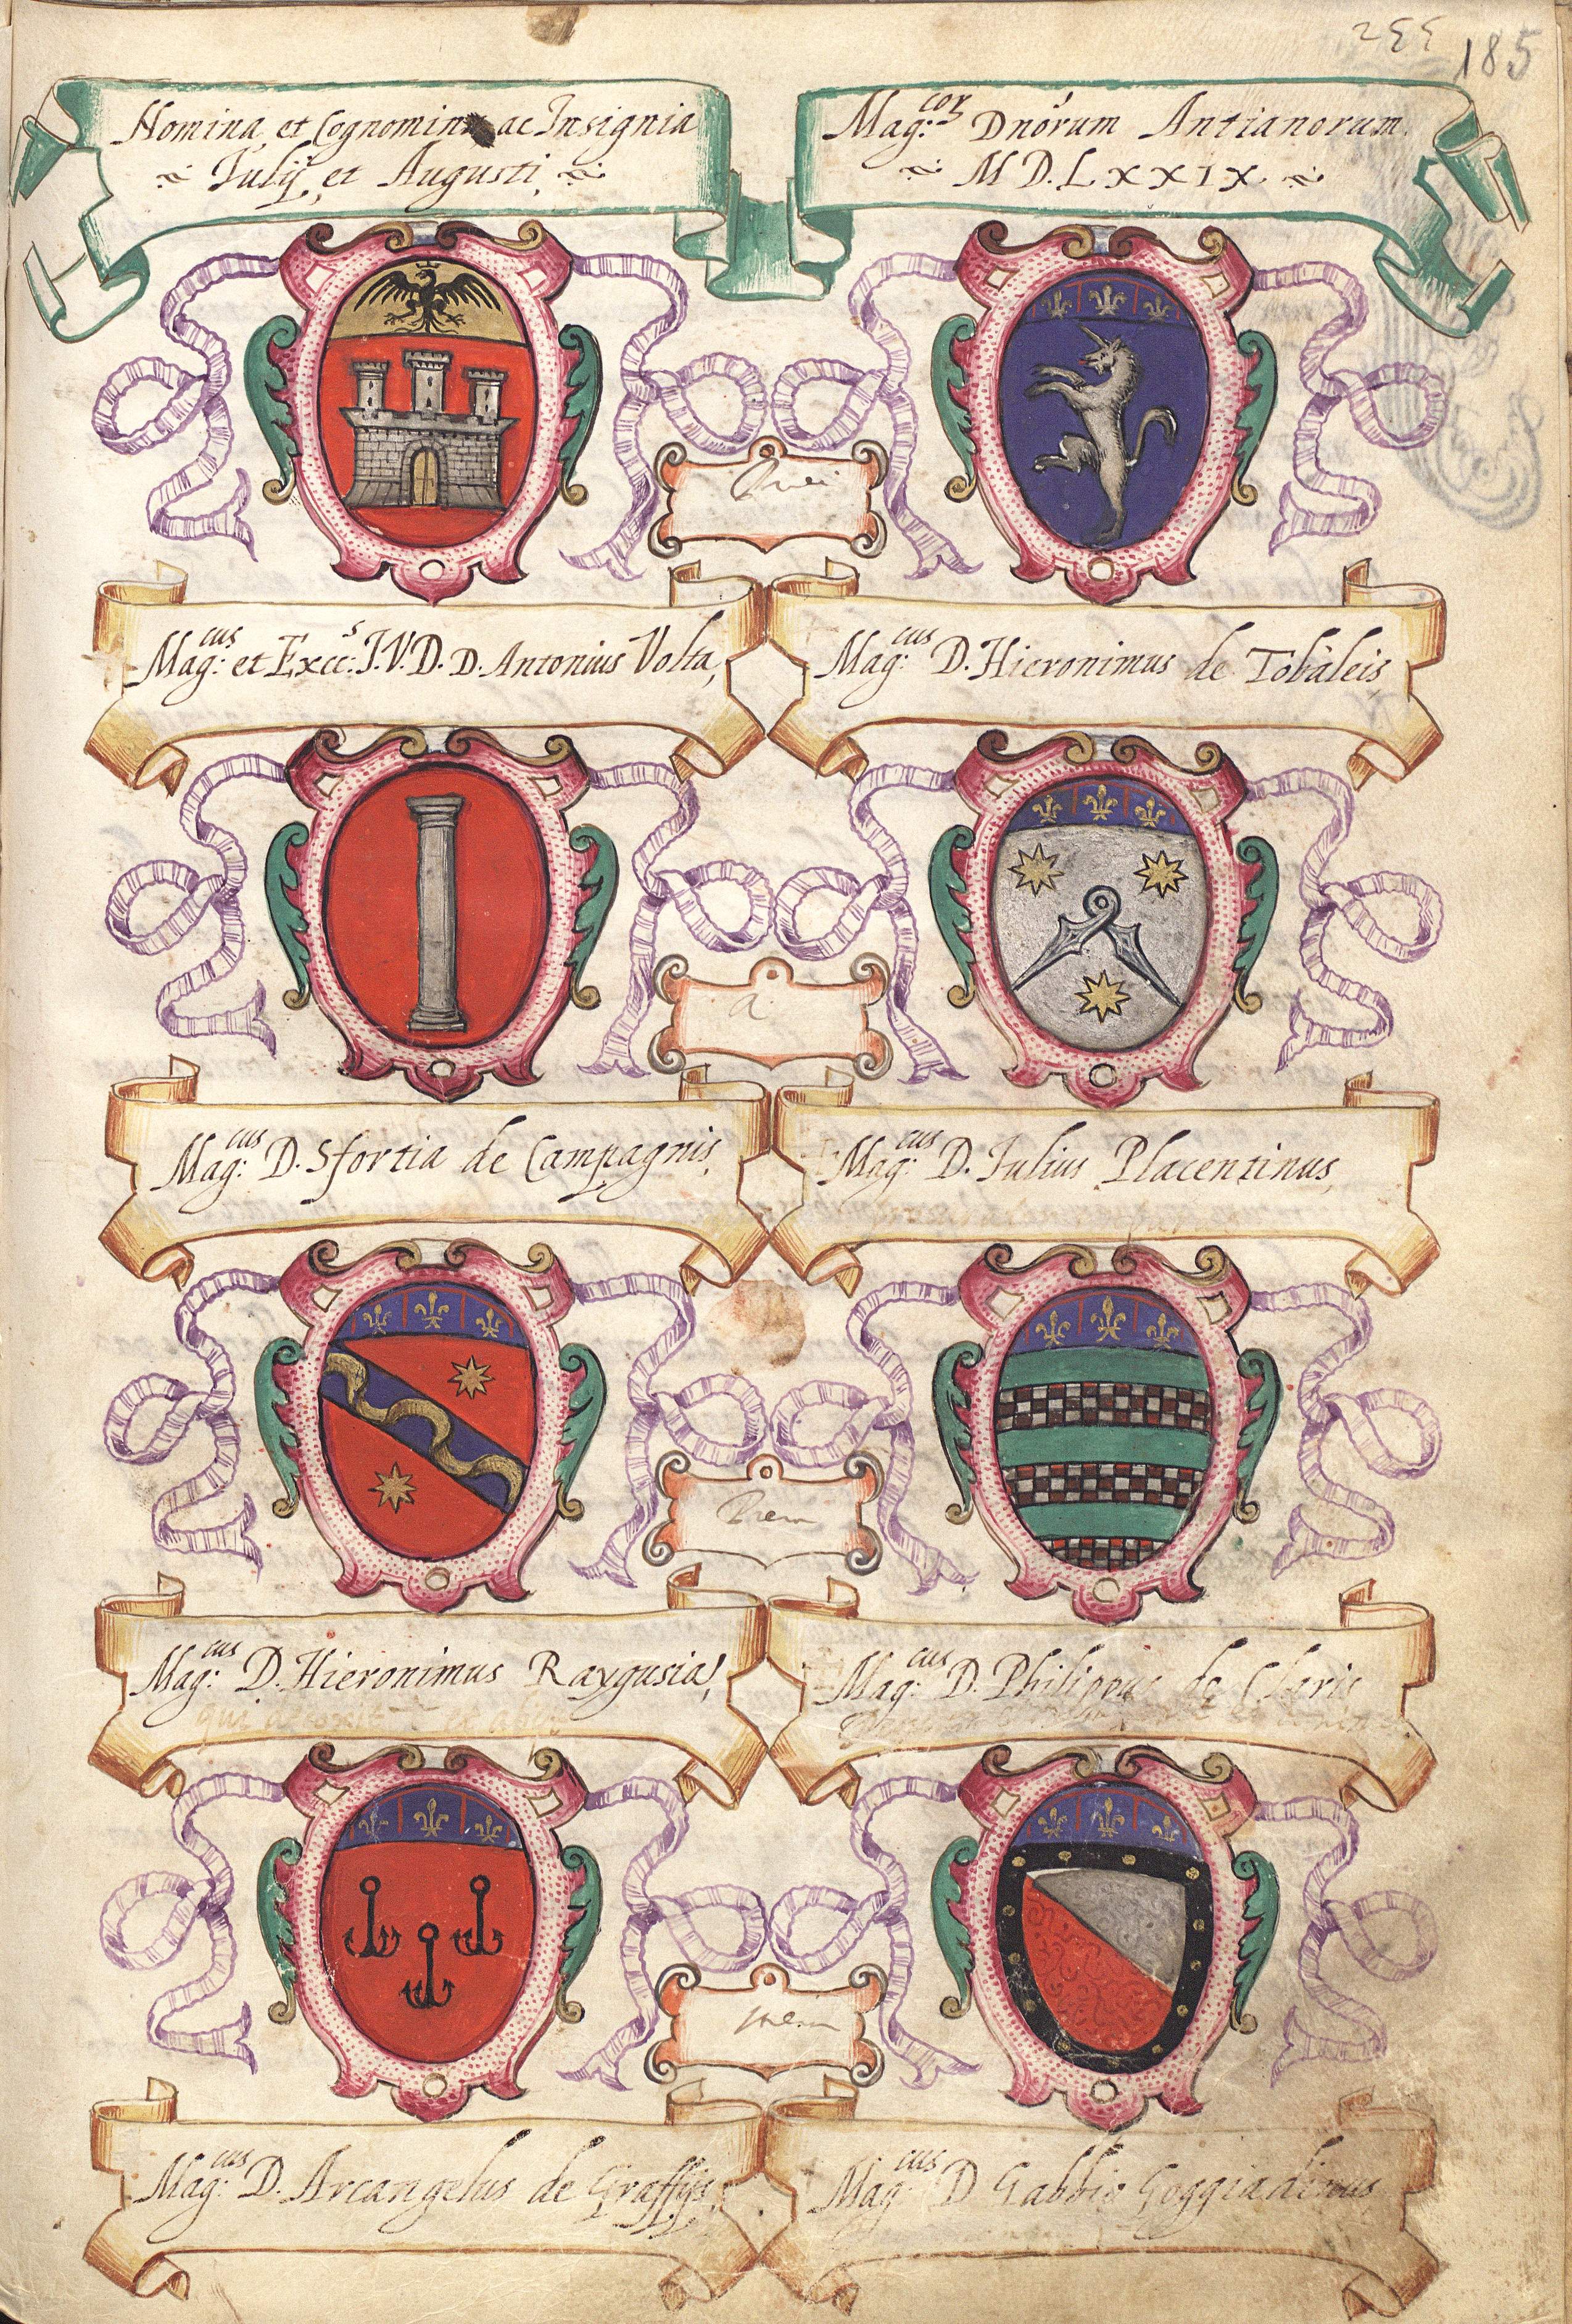 185
Nomina, et Cognomina ac Insignia
Iulij, et Augusti,
Mag:cor Dnõrum Antianorum
M D. L x x I x
Mag:cus et Excc:s I. V. D. D. Antonius Volta,
Mag:cus D. Hieronimus de Tobaleis,
Mag:cus D. Sfortia de Campagnis,
a
Mag:cus D. Iulius Placentinus,
Mag:cus D. Hieronimus Raxgusia,
Mag:cus D. Philippus de Claris
Mag:cus D. Arcangelus de Graffijs,
Mag:cus D Gabbio Goggiadinus